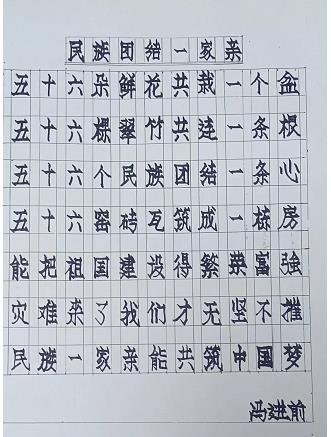 民族团结一家亲
五十六朵鲜花共栽一个盆
五十六棵翠竹共连一条根
五十六个民族团结一条心
五十六窑砖瓦筑成一栋房
能把祖国建设得繁荣富強
灾难来了我们才无坚不摧
民族一家亲能共筑中国梦
冯进前